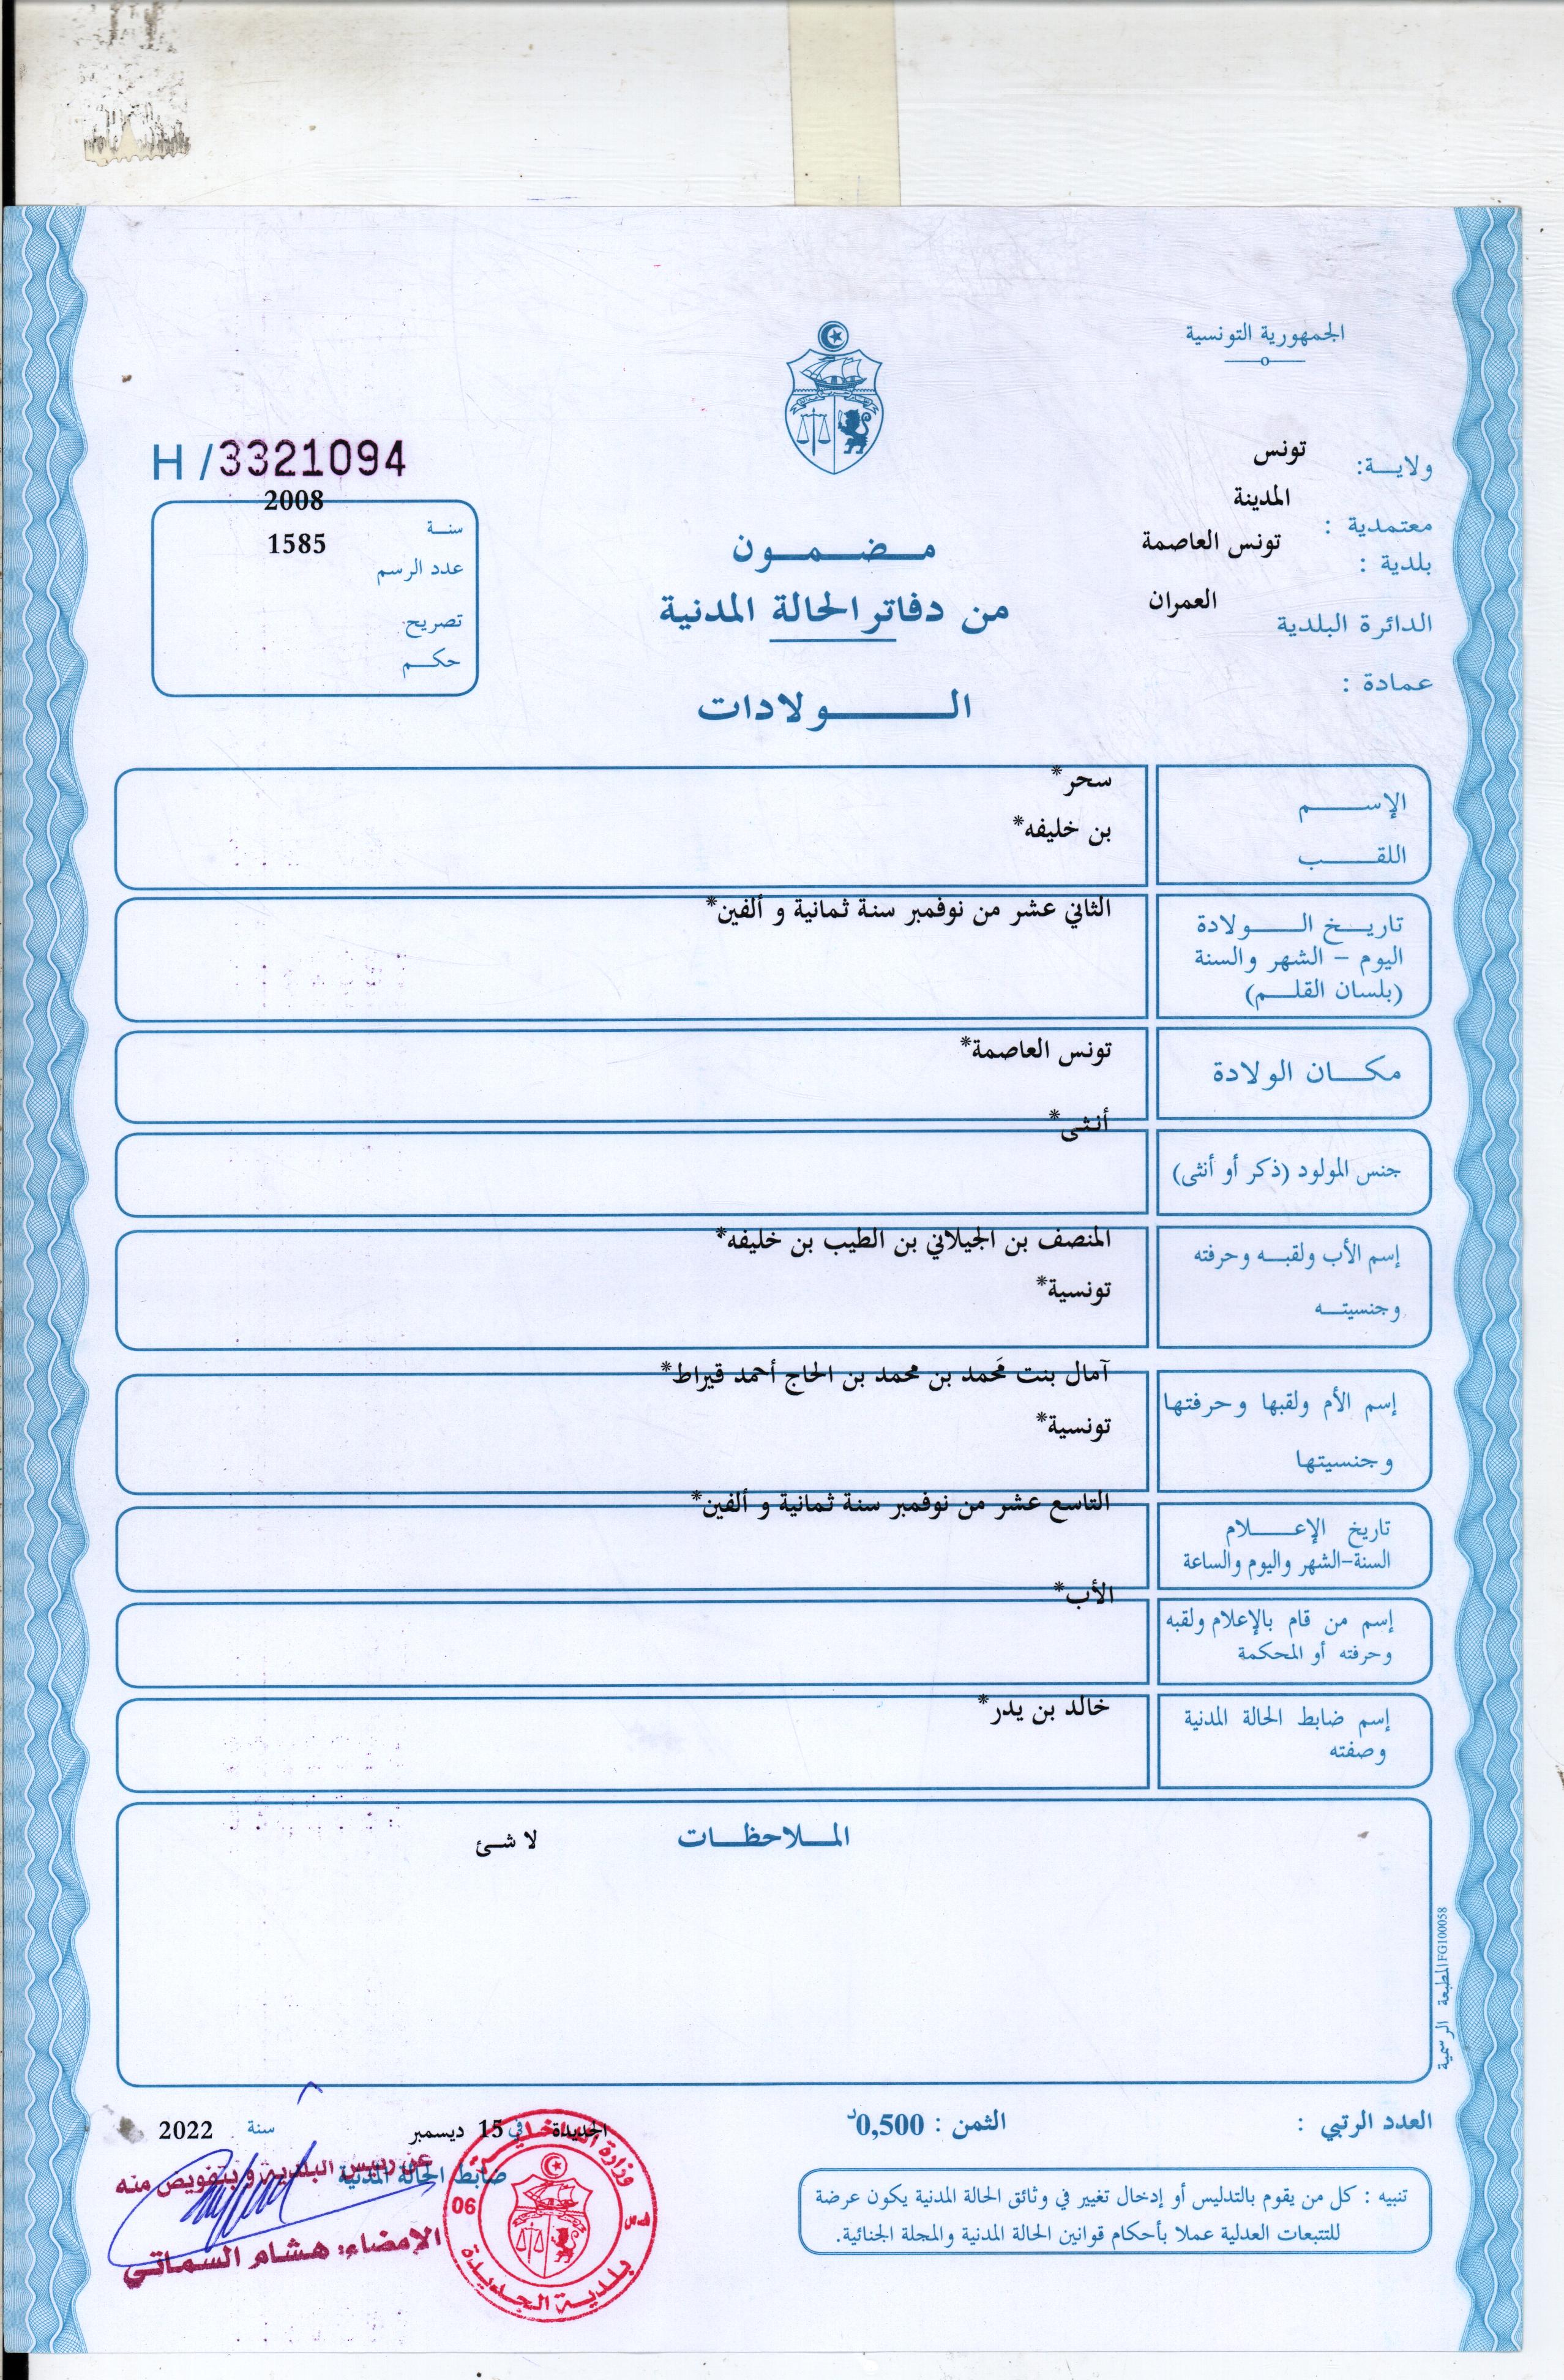 الجمهورية التونسية
ولايـــة: تونس
معتمدية : المدينة
بلدية : تونس العاصمة
الدائرة البلدية العمران
عمادة :
مـــضـــمـــون
من دفاتر الحالة المدنية
الـــــولادات
H /3321094
سنـــة 2008
عدد الرسم 1585
تصريح
حكـــم
الإســـــم سحر*
اللقـــــب بن خليفه*
تاريـــخ الـــــولادة الثاني عشر من نوفمبر سنة ثمانية و ألفين*
اليوم – الشهر والسنة
(بلسان القلـــم)
مكـــان الولادة تونس العاصمة*
جنس المولود (ذكر أو أنثى) أنثى*
إسم الأب ولقبـــه وحرفته المنصف بن الجيلاني بن الطيب بن خليفه*
وجنسيتـــه تونسية*
إسم الأم ولقبها وحرفتها آمال بنت مَحمد بن محمد بن الحاج أحمد قيراط*
وجنسيتها تونسية*
تاريخ الإعـــــلام التاسع عشر من نوفمبر سنة ثمانية و ألفين*
السنة-الشهر واليوم والساعة
إسم من قام بالإعلام ولقبه الأب*
وحرفته أو المحكمة
إسم ضابط الحالة المدنية خالد بن يدر*
وصفته
المـــلاحظـــات لا شئ
المطبعة الرسمية FG100058
العدد الرتبي :
الثمن : 0,500د
الجديدة في 15 ديسمبر سنة 2022
ضابط الحالة المدنية
عن رئيس البلدية و بتفويض منه
الإمضاء: هشام السماتي
وزارة الداخلية
06
بلدية الجديدة
تنبيه : كل من يقوم بالتدليس أو إدخال تغيير في وثائق الحالة المدنية يكون عرضة
للتتبعات العدلية عملا بأحكام قوانين الحالة المدنية والمجلة الجنائية.